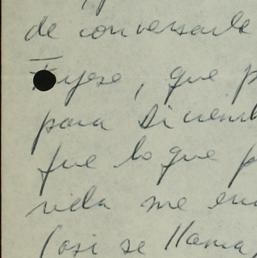 de conversarle
que p
para Diciemb
fue lo que p
vida me en
(así se llama,